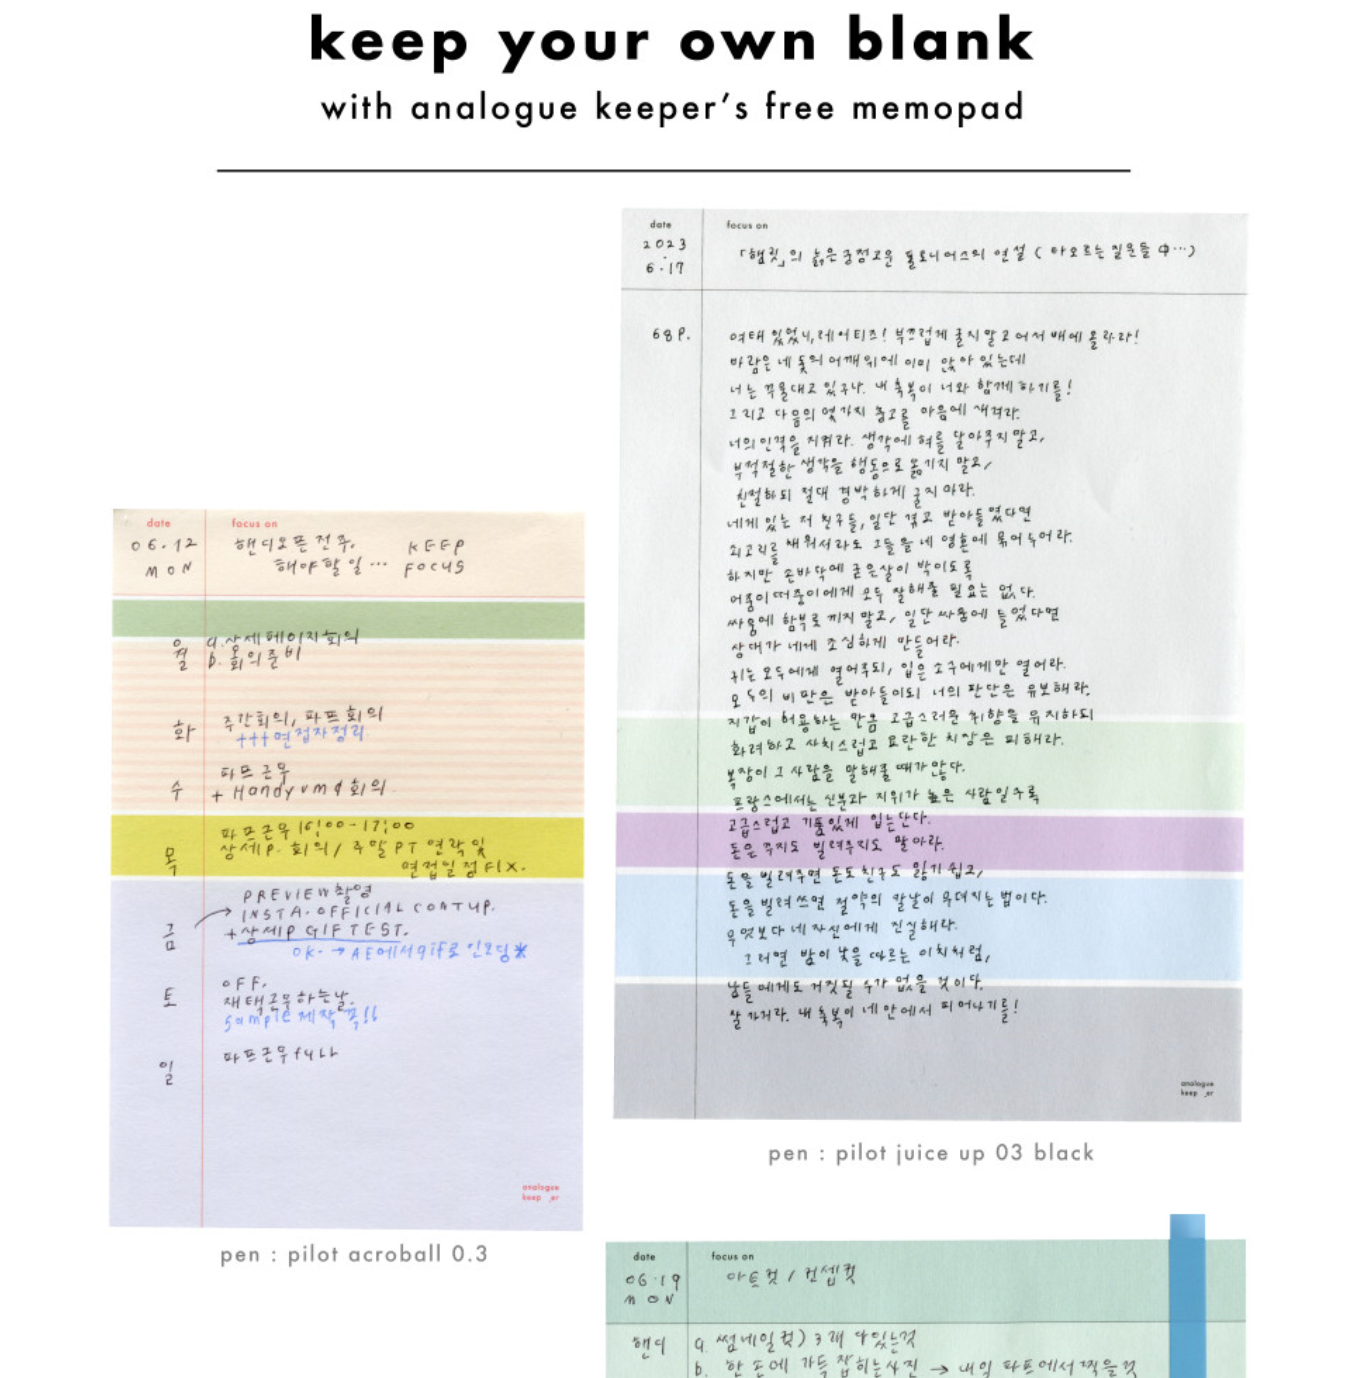 keep your own blank
with analogue keeper's free memopad
date
focus on
2023
6.17
「햄릿」의 늙은 궁정고문 폴로니어스의 연설 ( 타오르는 질문들 中…)
68p.
여태 있었니, 레어티즈! 부끄럽게 굴지 말고 어서 배에 올라라!
바람은 네 돛의 어깨 위에 이미 앉아 있는데
너는 꾸물대고 있구나. 내 축복이 너와 함께 하기를!
그리고 다음의 몇가지 충고를 마음에 새겨라.
너의 인격을 지켜라. 생각에 혀를 달아주지 말고,
부적절한 생각을 행동으로 옮기지 말고,
친절하되 절대 경박하게 굴지 마라.
네게 있는 저 친구들, 일단 겪고 받아들였다면
쇠고리를 채워서라도 그들을 네 영혼에 묶어두어라.
하지만 손바닥에 굳은살이 박이도록
어중이떠중이에게 모두 잘해줄 필요는 없다.
싸움에 함부로 끼지 말고, 일단 싸움에 들었다면
상대가 네게 조심하게 만들어라.
귀는 모두에게 열어주되, 입은 소수에게만 열어라.
모두의 비판은 받아들이되 너의 판단은 유보해라.
지갑이 허용하는 만큼 고급스러운 취향을 유지하되
화려하고 사치스럽고 요란한 치장은 피해라.
복장이 그 사람을 말해줄 때가 많다.
프랑스에서는 신분과 지위가 높은 사람일수록
고급스럽고 기품있게 입는단다.
돈은 꾸지도 빌려주지도 말아라.
돈을 빌려주면 돈도 친구도 잃기 쉽고,
돈을 빌려 쓰면 절약의 칼날이 무뎌지는 법이다.
무엇보다 네 자신에게 진실해라.
그러면 밤이 낮을 따르는 이치처럼,
남들에게도 거짓될 수가 없을 것이다.
잘 가거라. 내 축복이 네 안에서 피어나기를!
analogue
keep _er
pen : pilot juice up 03 black
date
focus on
06.12
MON
핸디오픈 전주.
해야할 일…
KEEP
FOCUS
월
a. 상세페이지 회의
b. 회의준비
화
주간회의, 파프 회의
+++면접자정리
수
파프 근무
+ Handy vmd 회의.
목
파프근무 16:00-17:00
상세P. 회의 / 주말 PT 연락 및
면접일정 FIX.
금
PREVIEW촬영
INSTA. OFFICIAL CONTUP.
+상세P GIF TEST.
OK- → AE에서 gif로 인코딩*
토
OFF.
재택근무하는날.
Sample 제작 쭉!!
일
파프근무 full
analogue
keep _er
pen : pilot acroball 0.3
date
focus on
06.19
MON
아트컷 / 컨셉컷
핸디
a. 썸네일컷) 3개 다있는것
b. 한 손에 가득 잡히는사진 → 내일 파프에서 찍을것